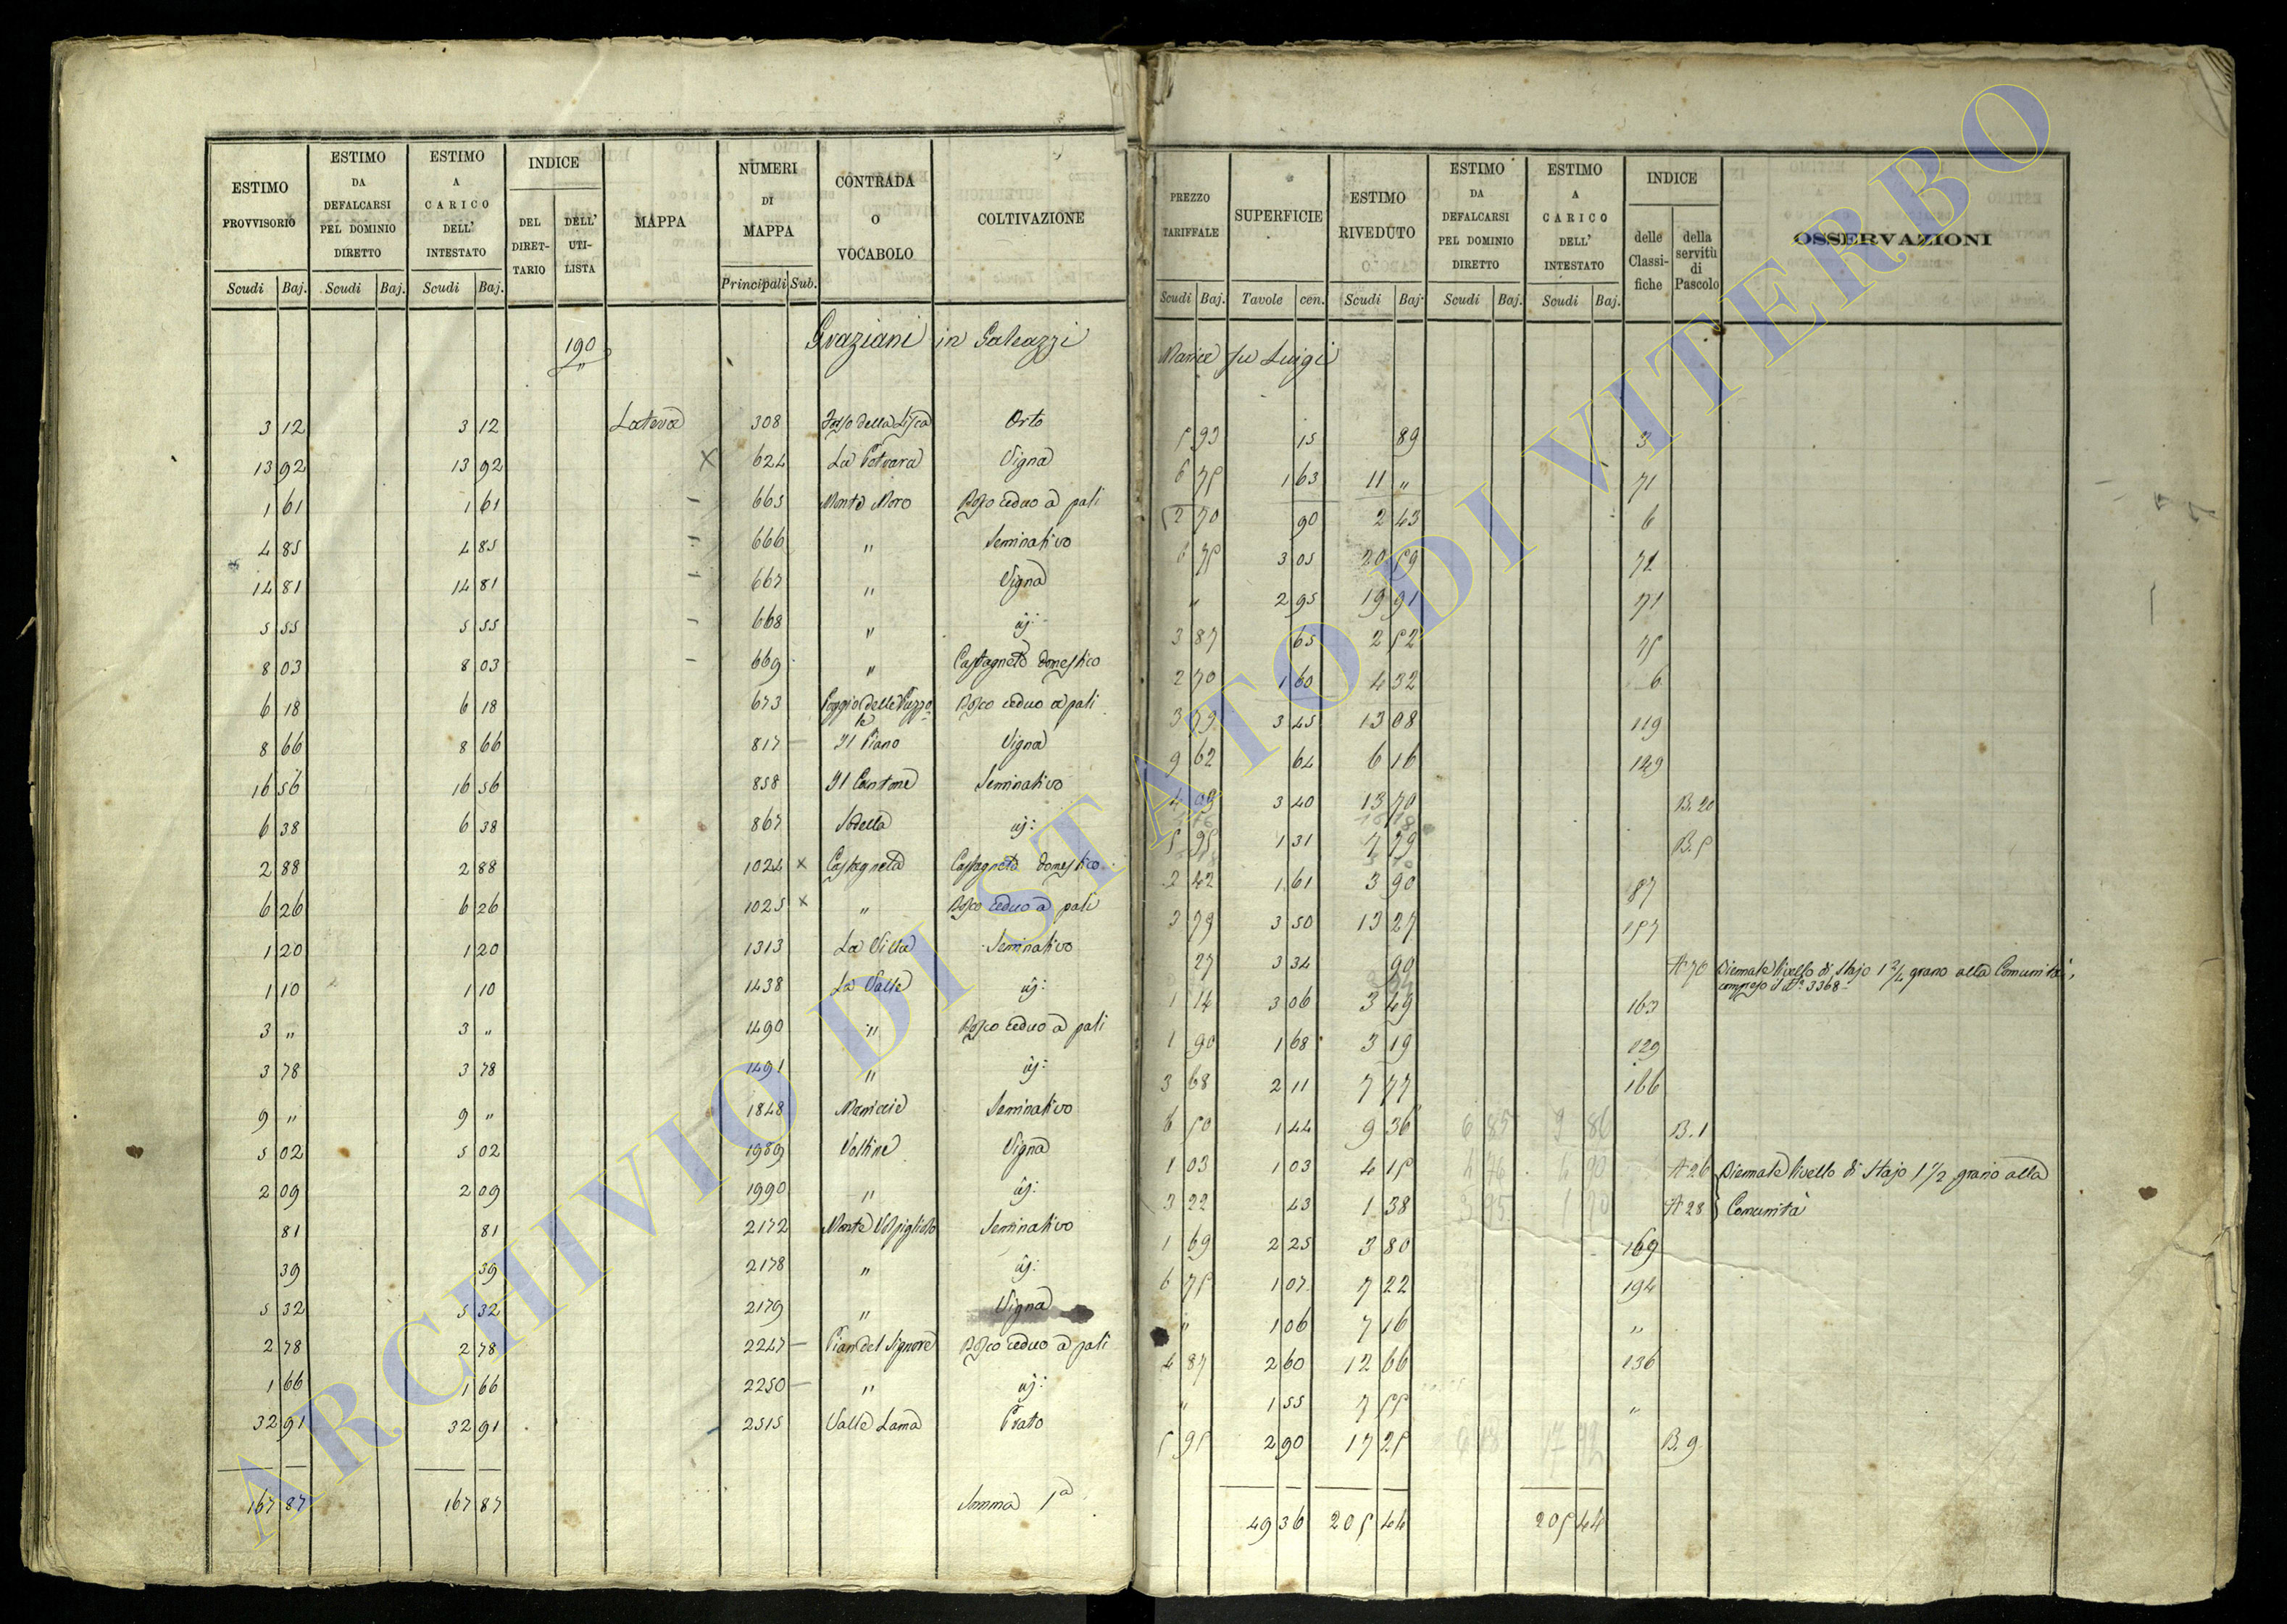 ESTIMO PROVVISORIO | ESTIMO DA DEFALCARSI PEL DOMINIO DIRETTO | ESTIMO A CARICO DELL' INTESTATO | INDICE DEL DIRET-TARIO | DELL' UTI-LISTA | MAPPA | NUMERI DI MAPPA | CONTRADA O VOCABOLO | COLTIVAZIONE | PREZZO TARIFFALE | SUPERFICIE | ESTIMO RIVEDUTO | ESTIMO DA DEFALCARSI PEL DOMINIO DIRETTO | ESTIMO A CARICO DELL' INTESTATO | INDICE delle Classi-fiche | della servitù di Pascolo | OSSERVAZIONI
Scudi Baj. Scudi Baj. Scudi Baj. Principali Sub. Scudi Baj. Tavole cen. Scudi Baj. Scudi Baj. Scudi Baj.
190 Graziani in Galeazzi Marice fu Luigi
3 12 3 12 Latera 308 Fosso della Lisca Orto 5 93 15 89 3
13 92 13 92 X 624 La Petrara Vigna 6 75 1 63 11 " 71
1 61 1 61 – 665 Monte Moro Bosco ceduo a pali 2 70 90 2 43 6
4 85 4 85 – 666 " Seminativo 6 75 3 05 20 59 72
14 81 14 81 – 667 " Vigna " 2 95 19 91 71
5 55 5 55 – 668 " ij: 3 87 65 2 52 75
8 03 8 03 – 669 " Castagneto domestico 2 70 1 60 4 32 6
6 18 6 18 673 Poggio delle Puzzole Bosco ceduo a pali 3 79 3 45 13 08 119
8 66 8 66 817 – Il Piano Vigna 9 62 64 6 16 149
16 56 16 56 858 Il Cantone Seminativo 4 03 3 40 13 70 B. 20
6 38 6 38 867 ij: 5 95 1 31 7 79 B. 5
2 88 2 88 1024 x Castagneta Castagneto domestico 2 42 1 61 3 90 87
6 26 6 26 1025 x " Bosco ceduo a pali 3 79 3 50 13 27 157
1 20 1 20 1313 La Villa Seminativo 27 3 34 90 A 70 Biennale livello di Stajo 1 3/4 grano alla Comunità,
compreso il N.º 3368
1 10 1 10 1438 La Valle ij: 1 14 3 06 3 49 163
3 " 3 " 1490 " Bosco ceduo a pali 1 90 1 68 3 19 129
3 78 3 78 1491 " ij: 3 68 2 11 7 77 166
9 " 9 " 1848 Seminativo 6 50 1 44 9 36 6 85 9 86 B. 1
5 02 5 02 1989 Voltine Vigna 1 03 1 03 4 15 A 26 Biennale livello di Stajo 1 1/2 grano alla
2 09 2 09 1990 " ij: 3 22 43 1 38 A 28 } Comunità
81 81 2172 Monte Vospiglioso Seminativo 1 69 2 25 3 80 169
39 39 2178 " ij: 6 75 1 07 7 22 194
5 32 5 32 2179 " Vigna " 1 06 7 16 "
2 78 2 78 2247 – Pian del Signore Bosco ceduo a pali 4 87 2 60 12 66 136
1 66 1 66 2250 – " ij: " 1 55 7 55 "
32 91 32 91 2515 Valle Lama Prato 5 95 2 90 17 25 B. 9
167 87 167 87 Somma 1ª 49 36 205 44 205 44
ARCHIVIO DI STATO DI VITERBO